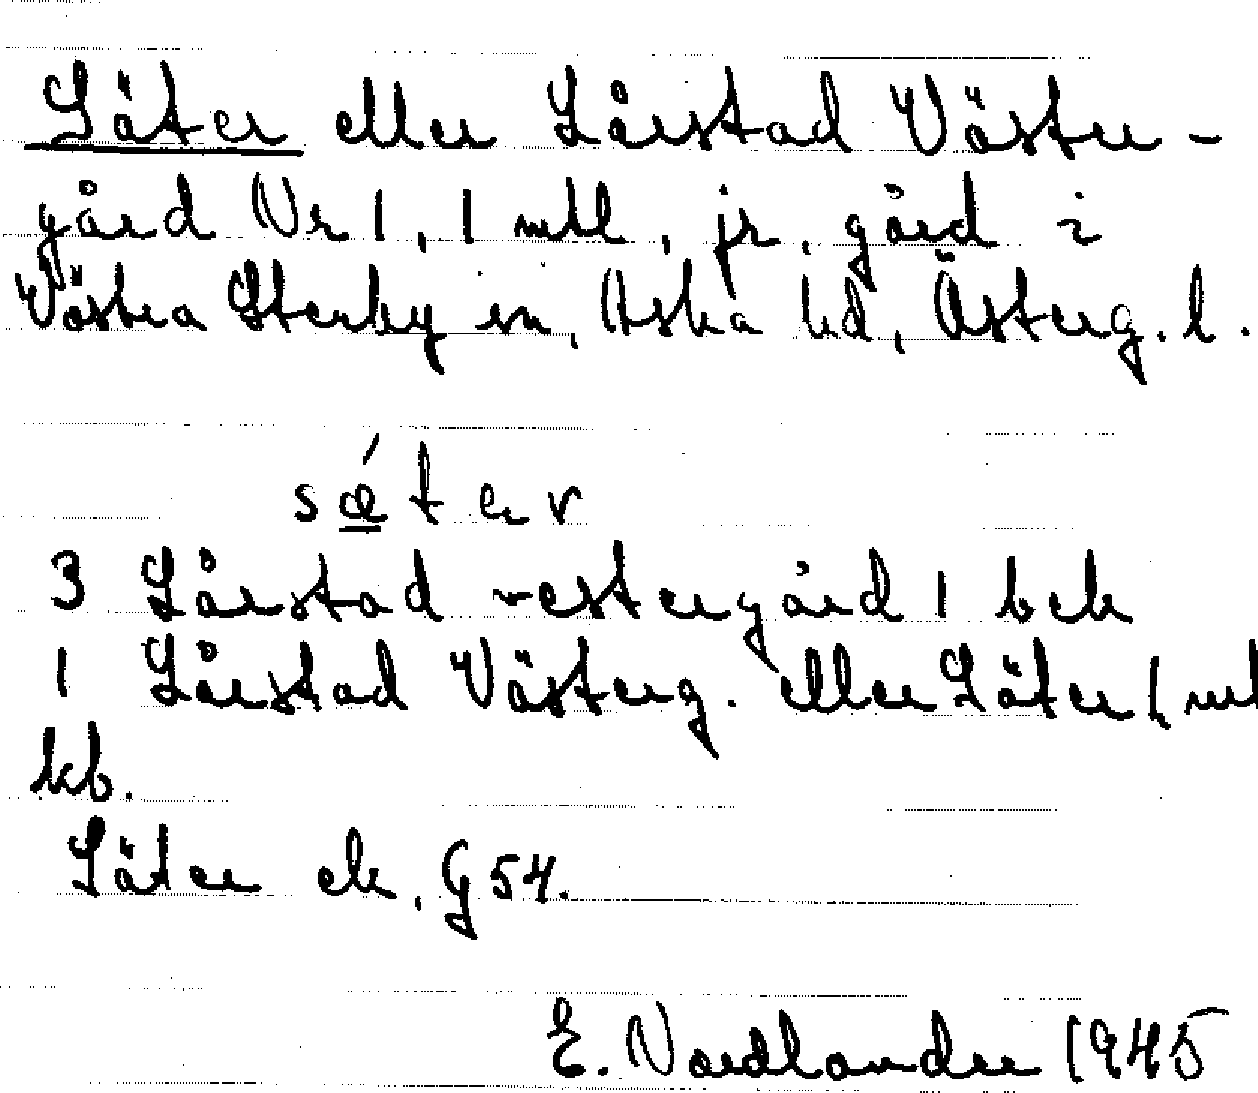 Säter eller Sårstad Väster-
gård Nr 1, 1 mtl, jr. gård i
Västra Stenby sn, Aska hd, Österg. l.
sǽter
3 Sårstad vestergård 1 bek
1 Sårstad Västerg. eller Säter 1 mtl
kb.
Säter ek. G 54.
E. Nordlander 1945